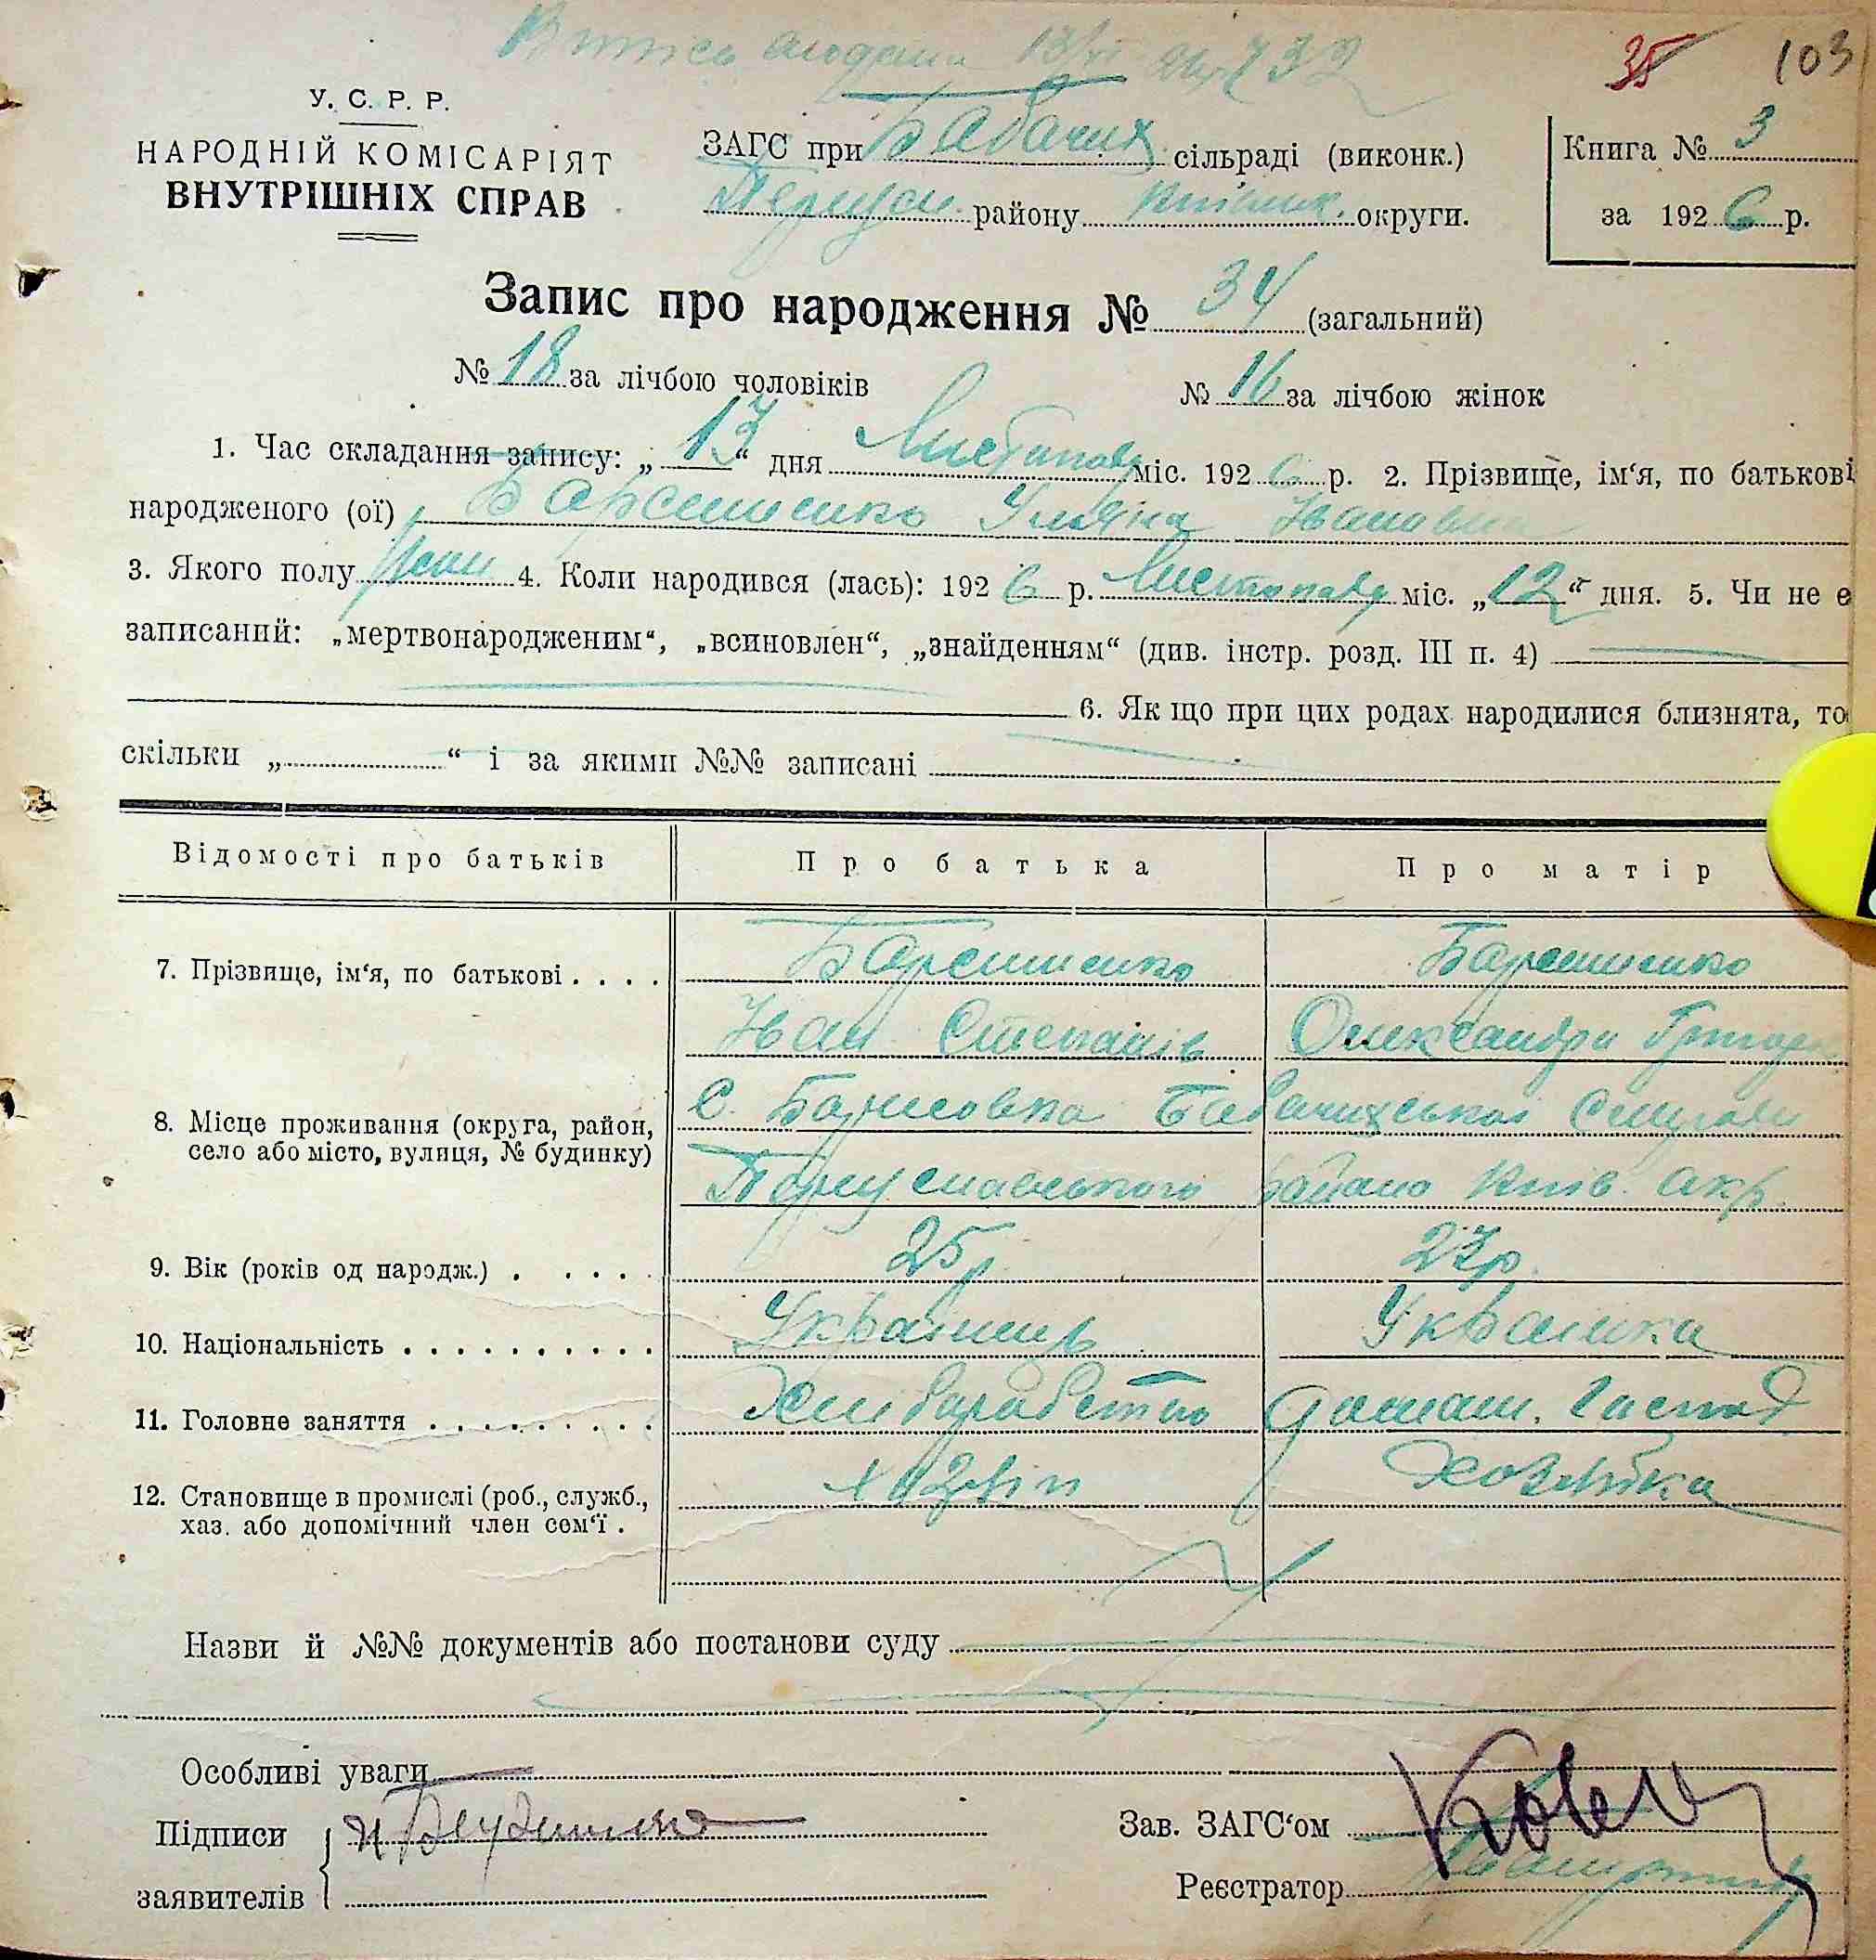 35 103
У. С. Р. Р.
НАРОДНІЙ КОМІСАРІЯТ
ВНУТРІШНІХ СПРАВ
ЗАГС при Бабачих сільраді (виконк.)
району округи.
Книга № 3
за 1926 р.
Запис про народження № 34 (загальний)
№ 18 за лічбою чоловіків № 16 за лічбою жінок
1. Час складання запису: „13“ дня Листопада міс. 1926 р. 2. Прізвище, ім‘я, по батькові
народженого (ої) Уляна Ивановна
3. Якого полу жен 4. Коли народився (лась): 1926 р. Листопаду міс. „12“ дня. 5. Чи не е
записаний: „мертвонародженим“, „всиновлен“, „знайденням“ (див. інстр. розд. III п. 4)
6. Як що при цих родах народилися близнята, то
скільки „ “ і за якими №№ записані
Відомості про батьків Про батька Про матір
7. Прізвище, ім‘я, по батькові . . . .
Иван Степанів Олександра
8. Місце проживання (округа, район, село або місто, вулиця, № будинку) С. Борисовка
району Київ. окр.
9. Вік (років од народж.) . . . . . 25 р 27 р.
10. Національність . . . . . . . . . . Українець Українка
11. Головне заняття . . . . . . . . . Хлиборобство домаш. Господ
12. Становище в промислі (роб., служб., хаз. або допомічний член сем‘ї . хозяін хозяйка
Назви й №№ документів або постанови суду
Особливі уваги
Підписи
заявителів
Зав. ЗАГС‘ом
Реєстратор